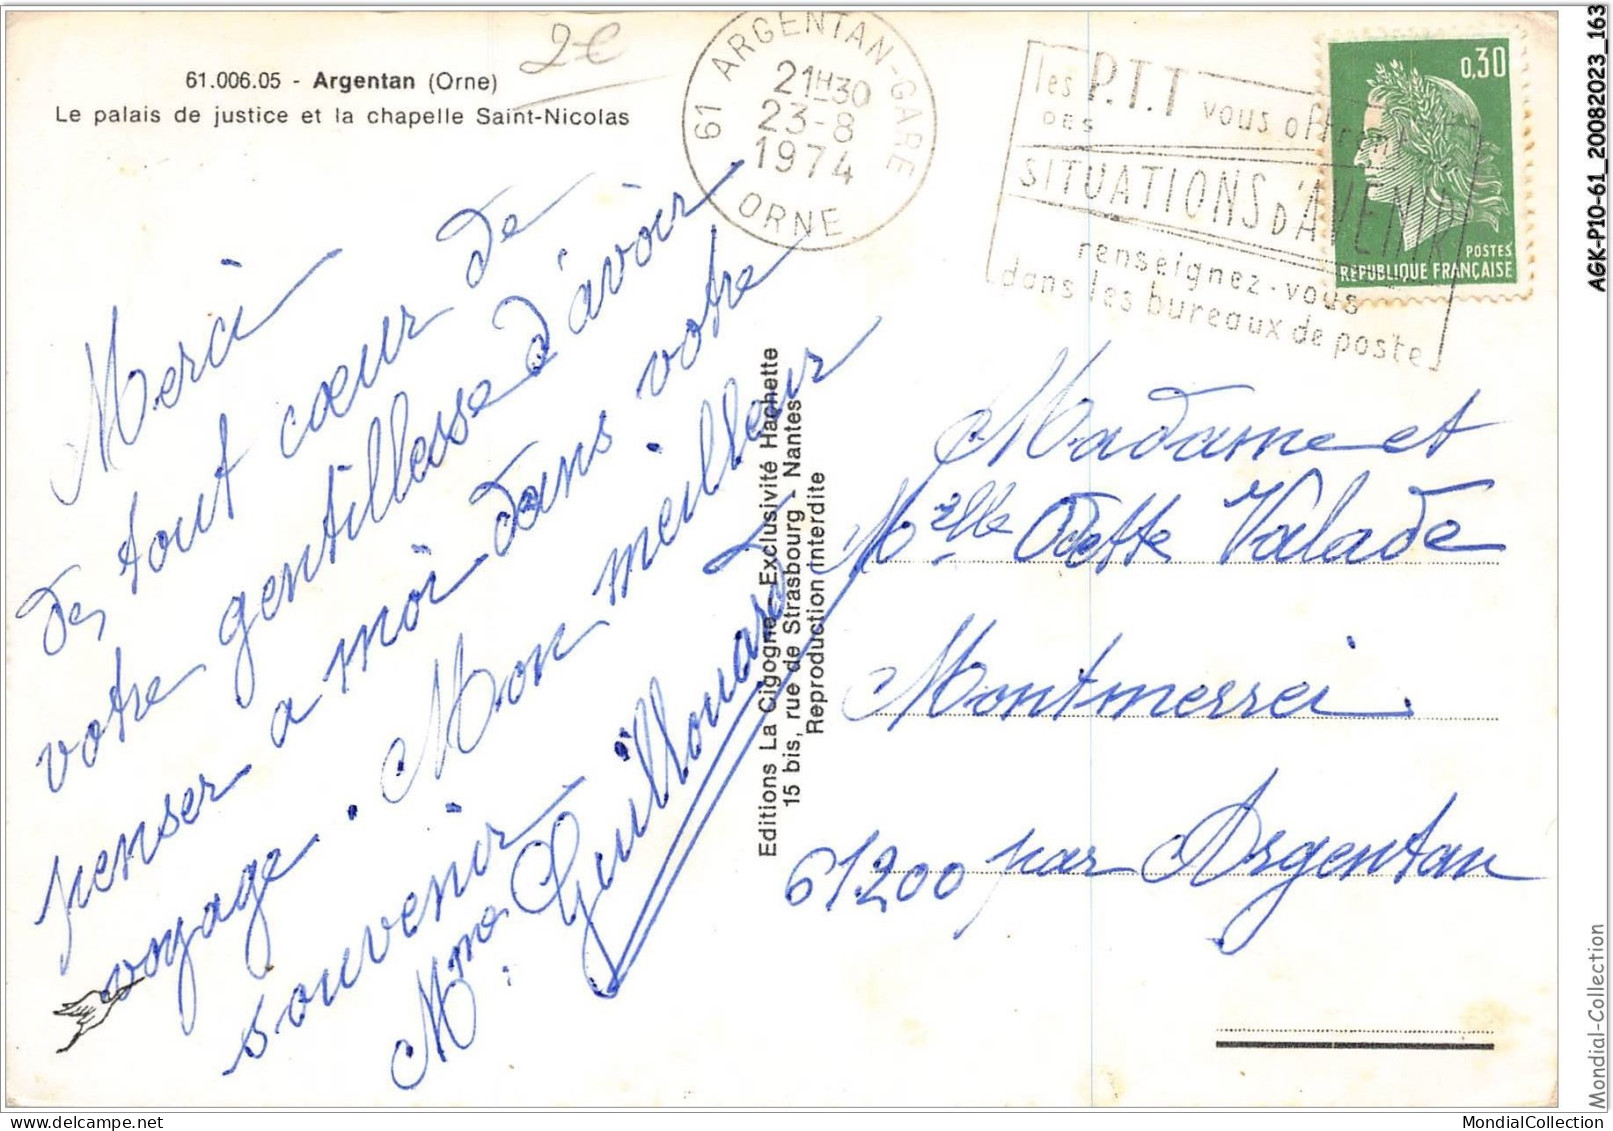 2€
61.006.05 - Argentan (Orne)
Le palais de justice et la chapelle Saint-Nicolas
61 ARGENTAN-GARE
21H30
23-8
1974
ORNE
les P.T.T vous offrent
DES
SITUATIONS D'AVENIR
renseignez-vous
dans les bureaux de poste
0,30
POSTES
RÉPUBLIQUE FRANÇAISE
Merci
de tout cœur de
votre gentillesse d'avoir
penser a moi dans votre
voyage. Mon meilleur
souvenir
Mme Guillouard
Editions La Cigogne - Exclusivité Hachette
15 bis, rue de Strasbourg - Nantes
Reproduction Interdite
Madame et
Melle Odette Valade
Montmerrei
61200 par Argentan
AGK-P10-61_20082023_163
Mondial-Collection
MondialCollection